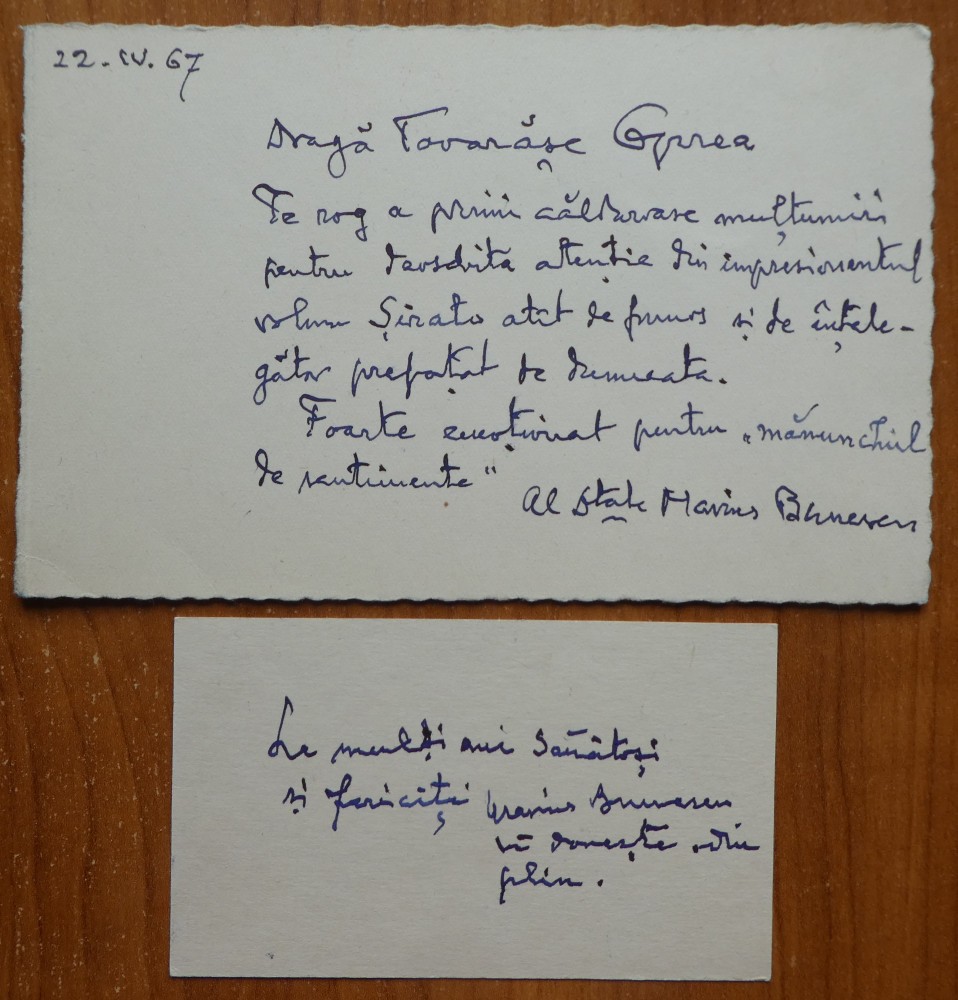 22.IV.67
Dragă Tovarășe Oprea
Te rog a primi călduroase mulțumiri
pentru deosebita atenție din impresionantul
volum Șirato atît de frumos și de înțele-
gător prefațat de dumneata.
Foarte emoționat pentru „mănunchiul
de sentimente"
Al D-tale Marius Bunescu
La mulți ani sănătoși
și fericiți Marius Bunescu
vă dorește din
plin.